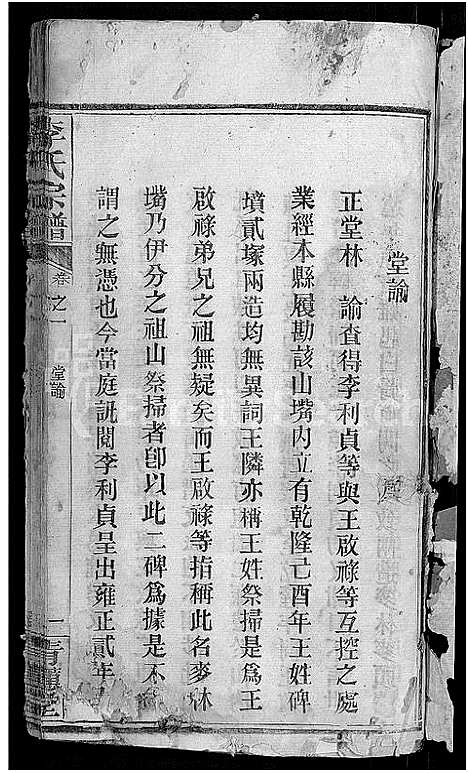 堂諭
正堂林　諭查得李利貞等與王啟祿等互控之處
業經本縣履勘該山嘴內立有乾隆己酉年王姓碑
墳貳塚兩造均無異詞王隣亦稱王姓祭掃是爲王
啟祿弟兄之祖無疑矣而王啟祿等指稱此名麥林
嘴乃伊分之祖山祭掃者卽以此二碑爲據是不
謂之無憑也今當庭訊閱李利貞呈出雍正貳年
李氏宗譜
卷之一
堂諭
一
青蓮堂